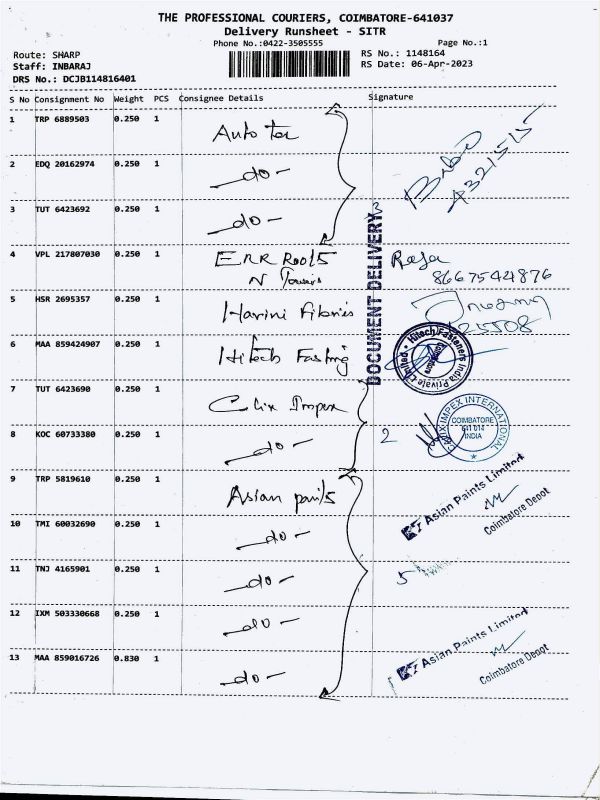 THE PROFESSIONAL COURIERS, COIMBATORE-641037
Delivery Runsheet - SITR
Phone No.:0422-3505555 Page No.:1
Route: SHARP RS No.: 1148164
Staff: INBARAJ RS Date: 06-Apr-2023
DRS No.: DCJB114816401
S No Consignment No Weight PCS Consignee Details Signature
1 TRP 6889503 0.250 1 Auto tec
2 EDQ 20162974 0.250 1 -do-
3 TUT 6423692 0.250 1 -do-
3
DOCUMENT DELIVERY
4 VPL 217807030 0.250 1 ERR Roots Raja
N Towers 8667544876
5 HSR 2695357 0.250 1 Harini Fibres
6 MAA 859424907 0.250 1 Hitech Fasting
Hitech Fasteners India Private Limited
Coimbatore
7 TUT 6423690 0.250 1 Celix Impex
8 KOC 60733380 0.250 1 -do- 2
CELIX IMPEX INTERNATIONAL
COIMBATORE
641 014
INDIA
9 TRP 5819610 0.250 1 Asian paints
Asian Paints Limited
Coimbatore Depot
10 TMI 60032690 0.250 1 -do-
11 TNJ 4165901 0.250 1 -do- 5
12 IXM 503330668 0.250 1 -do-
13 MAA 859016726 0.830 1 -do-
Asian Paints Limited
Coimbatore Depot